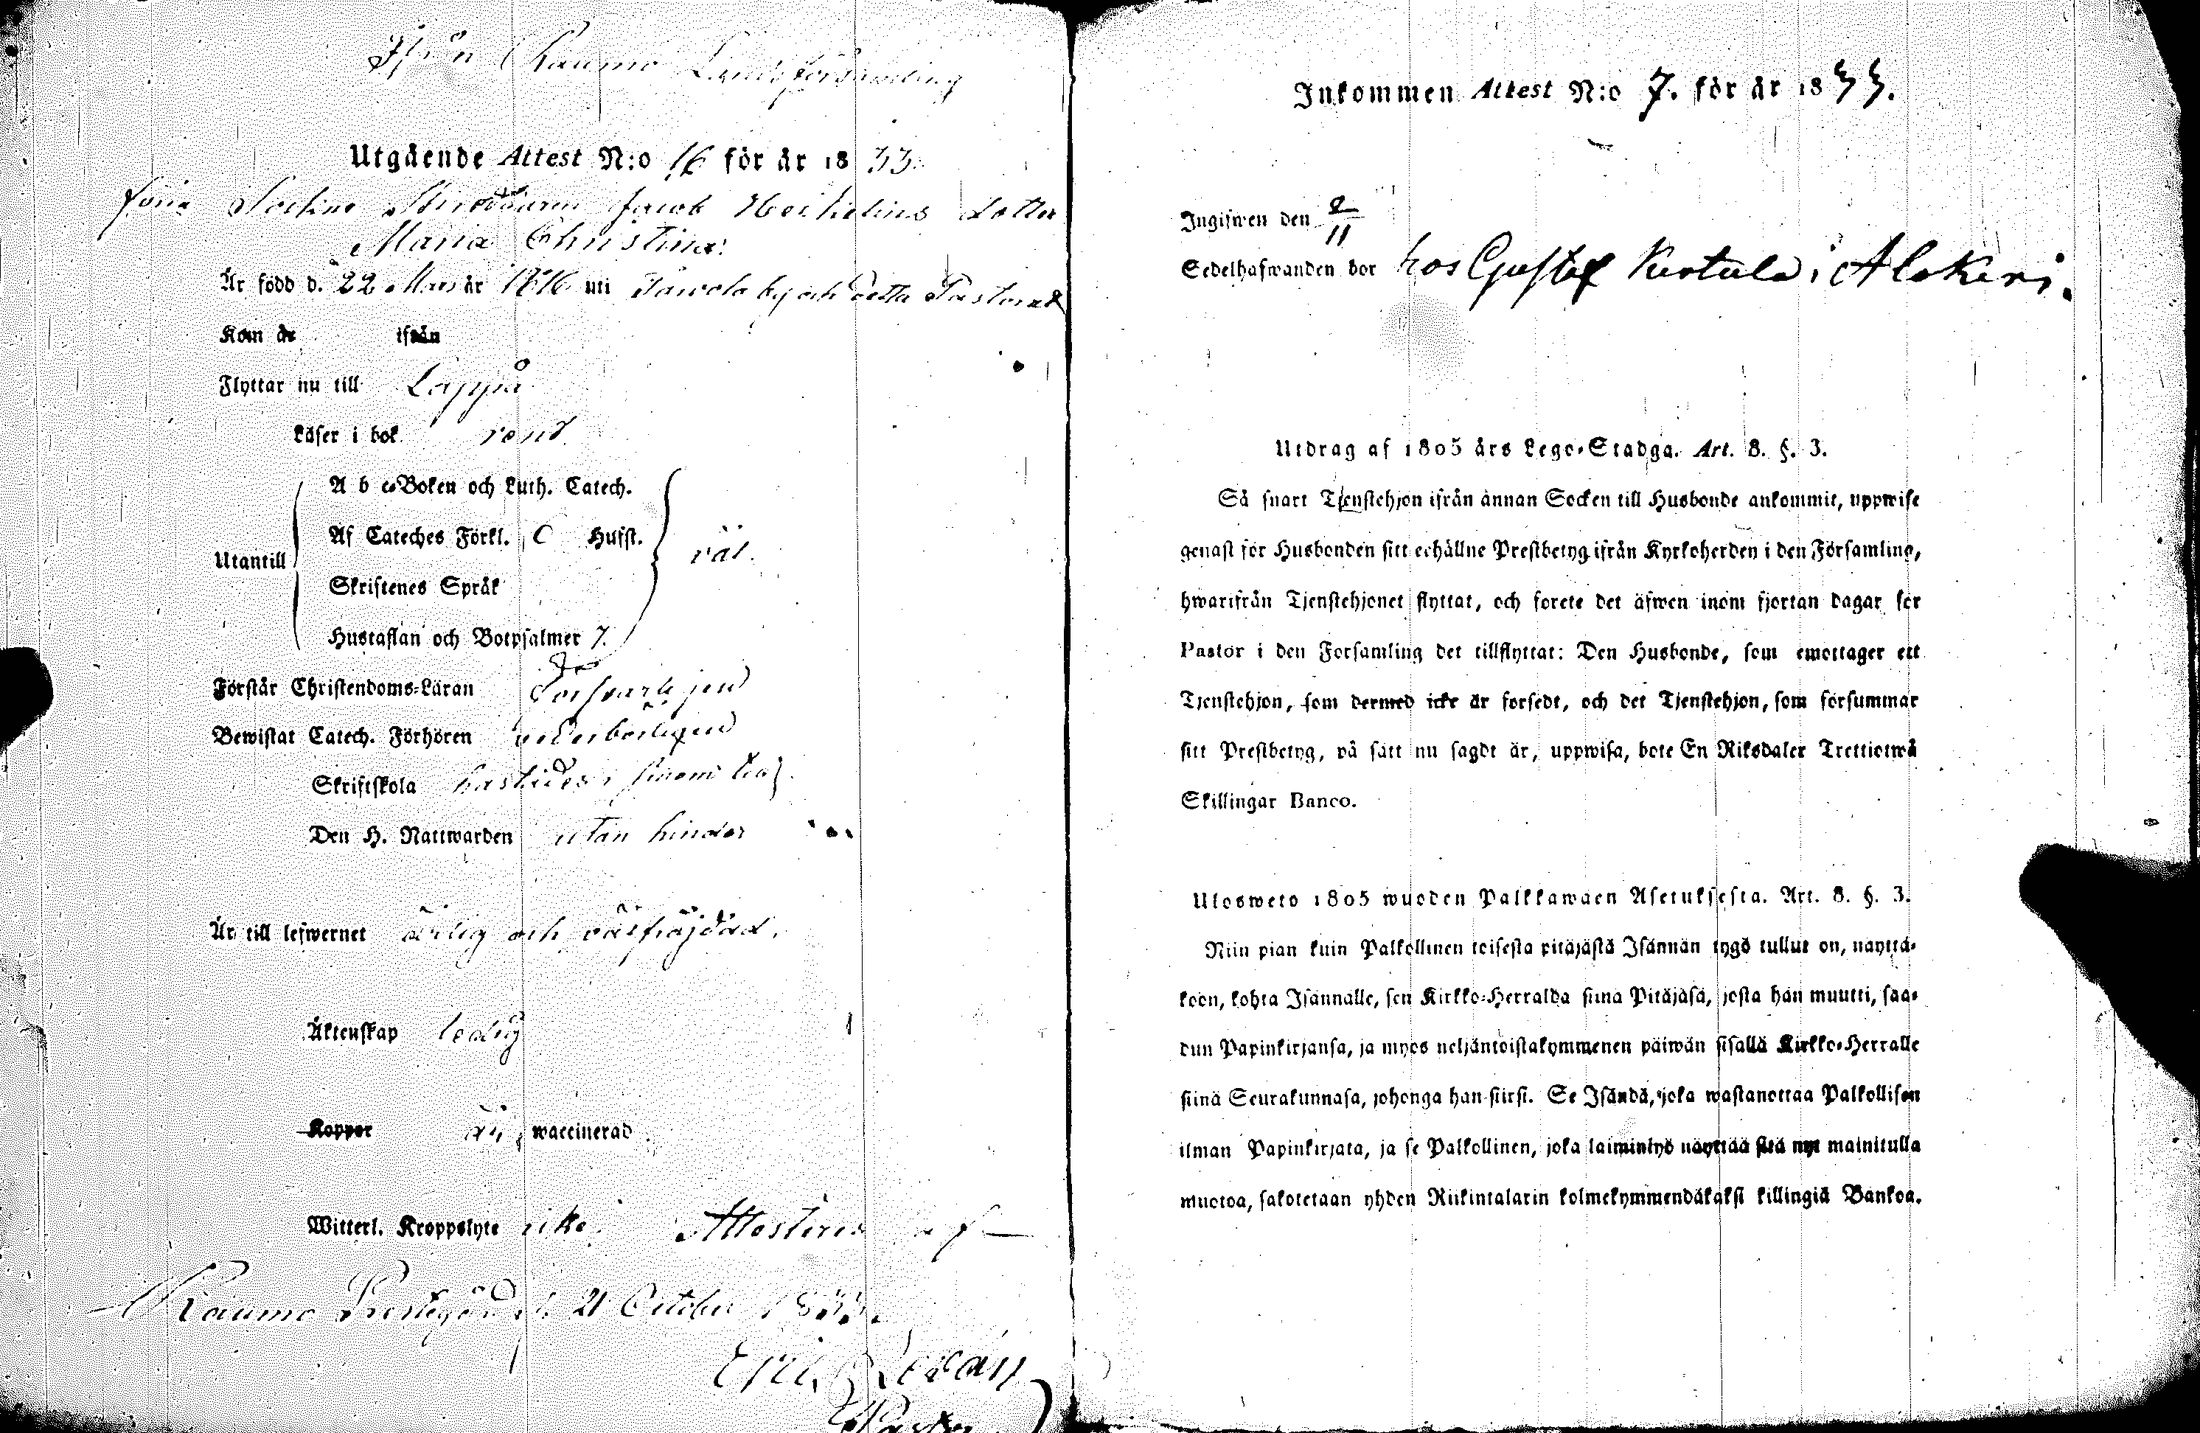 Ifrån Raumo Landsförsamling
Utgående Attest N:o 16 för år 1833.
Jacob dotter
Maria Christina
Är född d. 22 Mars år 1816 uti by och detta Pastorat
Kom år ifrån
Flyttar nu till Lappi
Läser i bok rent
A b c-Boken och Luth. Catech.
Af Cateches Förkl. C Husst.
Utantill väl.
Skriftenes Språk
Hustaflan och Botpsalmer 7.
Förstår Christendoms-Läran Försvarligen
Bewistat Catech. Förhören vederbörligen
Skriftskola
Den H. Nattwarden utan hinder
Är till lefwernet ärlig och välfräjdad.
Äktenskap ledig
Koppor är waccinerad
Witterl. Kroppslyte icke. Attesteras af
Raumo Prestegård d. 21 October 1833.
Eric
Pastor
Inkommen Attest N:o 7. för år 1833.
Ingifwen den 2/11
Sedelhafwanden bor hos Gustaf Kertula i Alakeri.
Utdrag af 1805 års Lego-Stadga. Art. 8. §. 3.
Så snart Tjenstehjon ifrån annan Socken till Husbonde ankommit, uppwise
genast för Husbonden sitt erhållne Prestbetyg ifrån Kyrkoherden i den Församling,
hwarifrån Tjenstehjonet flyttat, och förete det äfwen inom fjortan dagar för
Pastor i den Församling det tillflyttat: Den Husbonde, som emottager ett
Tjenstehjon, som dermed icke är försedt, och det Tjenstehjon, som försummar
sitt Prestbetyg, på sätt nu sagdt är, uppwisa, bote En Riksdaler Trettiotwå
Skillingar Banco.
Ulosweto 1805 wuoden Palkkawäen Asetuksesta. Art. 8. §. 3.
Niin pian kuin Palkollinen toisesta pitäjästä Isännän tygö tullut on, näyttä-
köön, kohta Isännälle, sen Kirkko-Herralda siinä Pitäjäsä, josta hän muutti, saa-
dun Papinkirjansa, ja myös neljäntoistakymmenen päiwän sisällä Kirkko-Herralle
siinä Seurakunnasa, johonga hän siirsi. Se Isändä, joka wastanottaa Palkollisen
ilman Papinkirjata, ja se Palkollinen, joka laiminlyö näyttää sitä nyt mainitulla
muotoa, sakotetaan yhden Riikintalarin kolmekymmendäkaksi killingiä Bankoa.